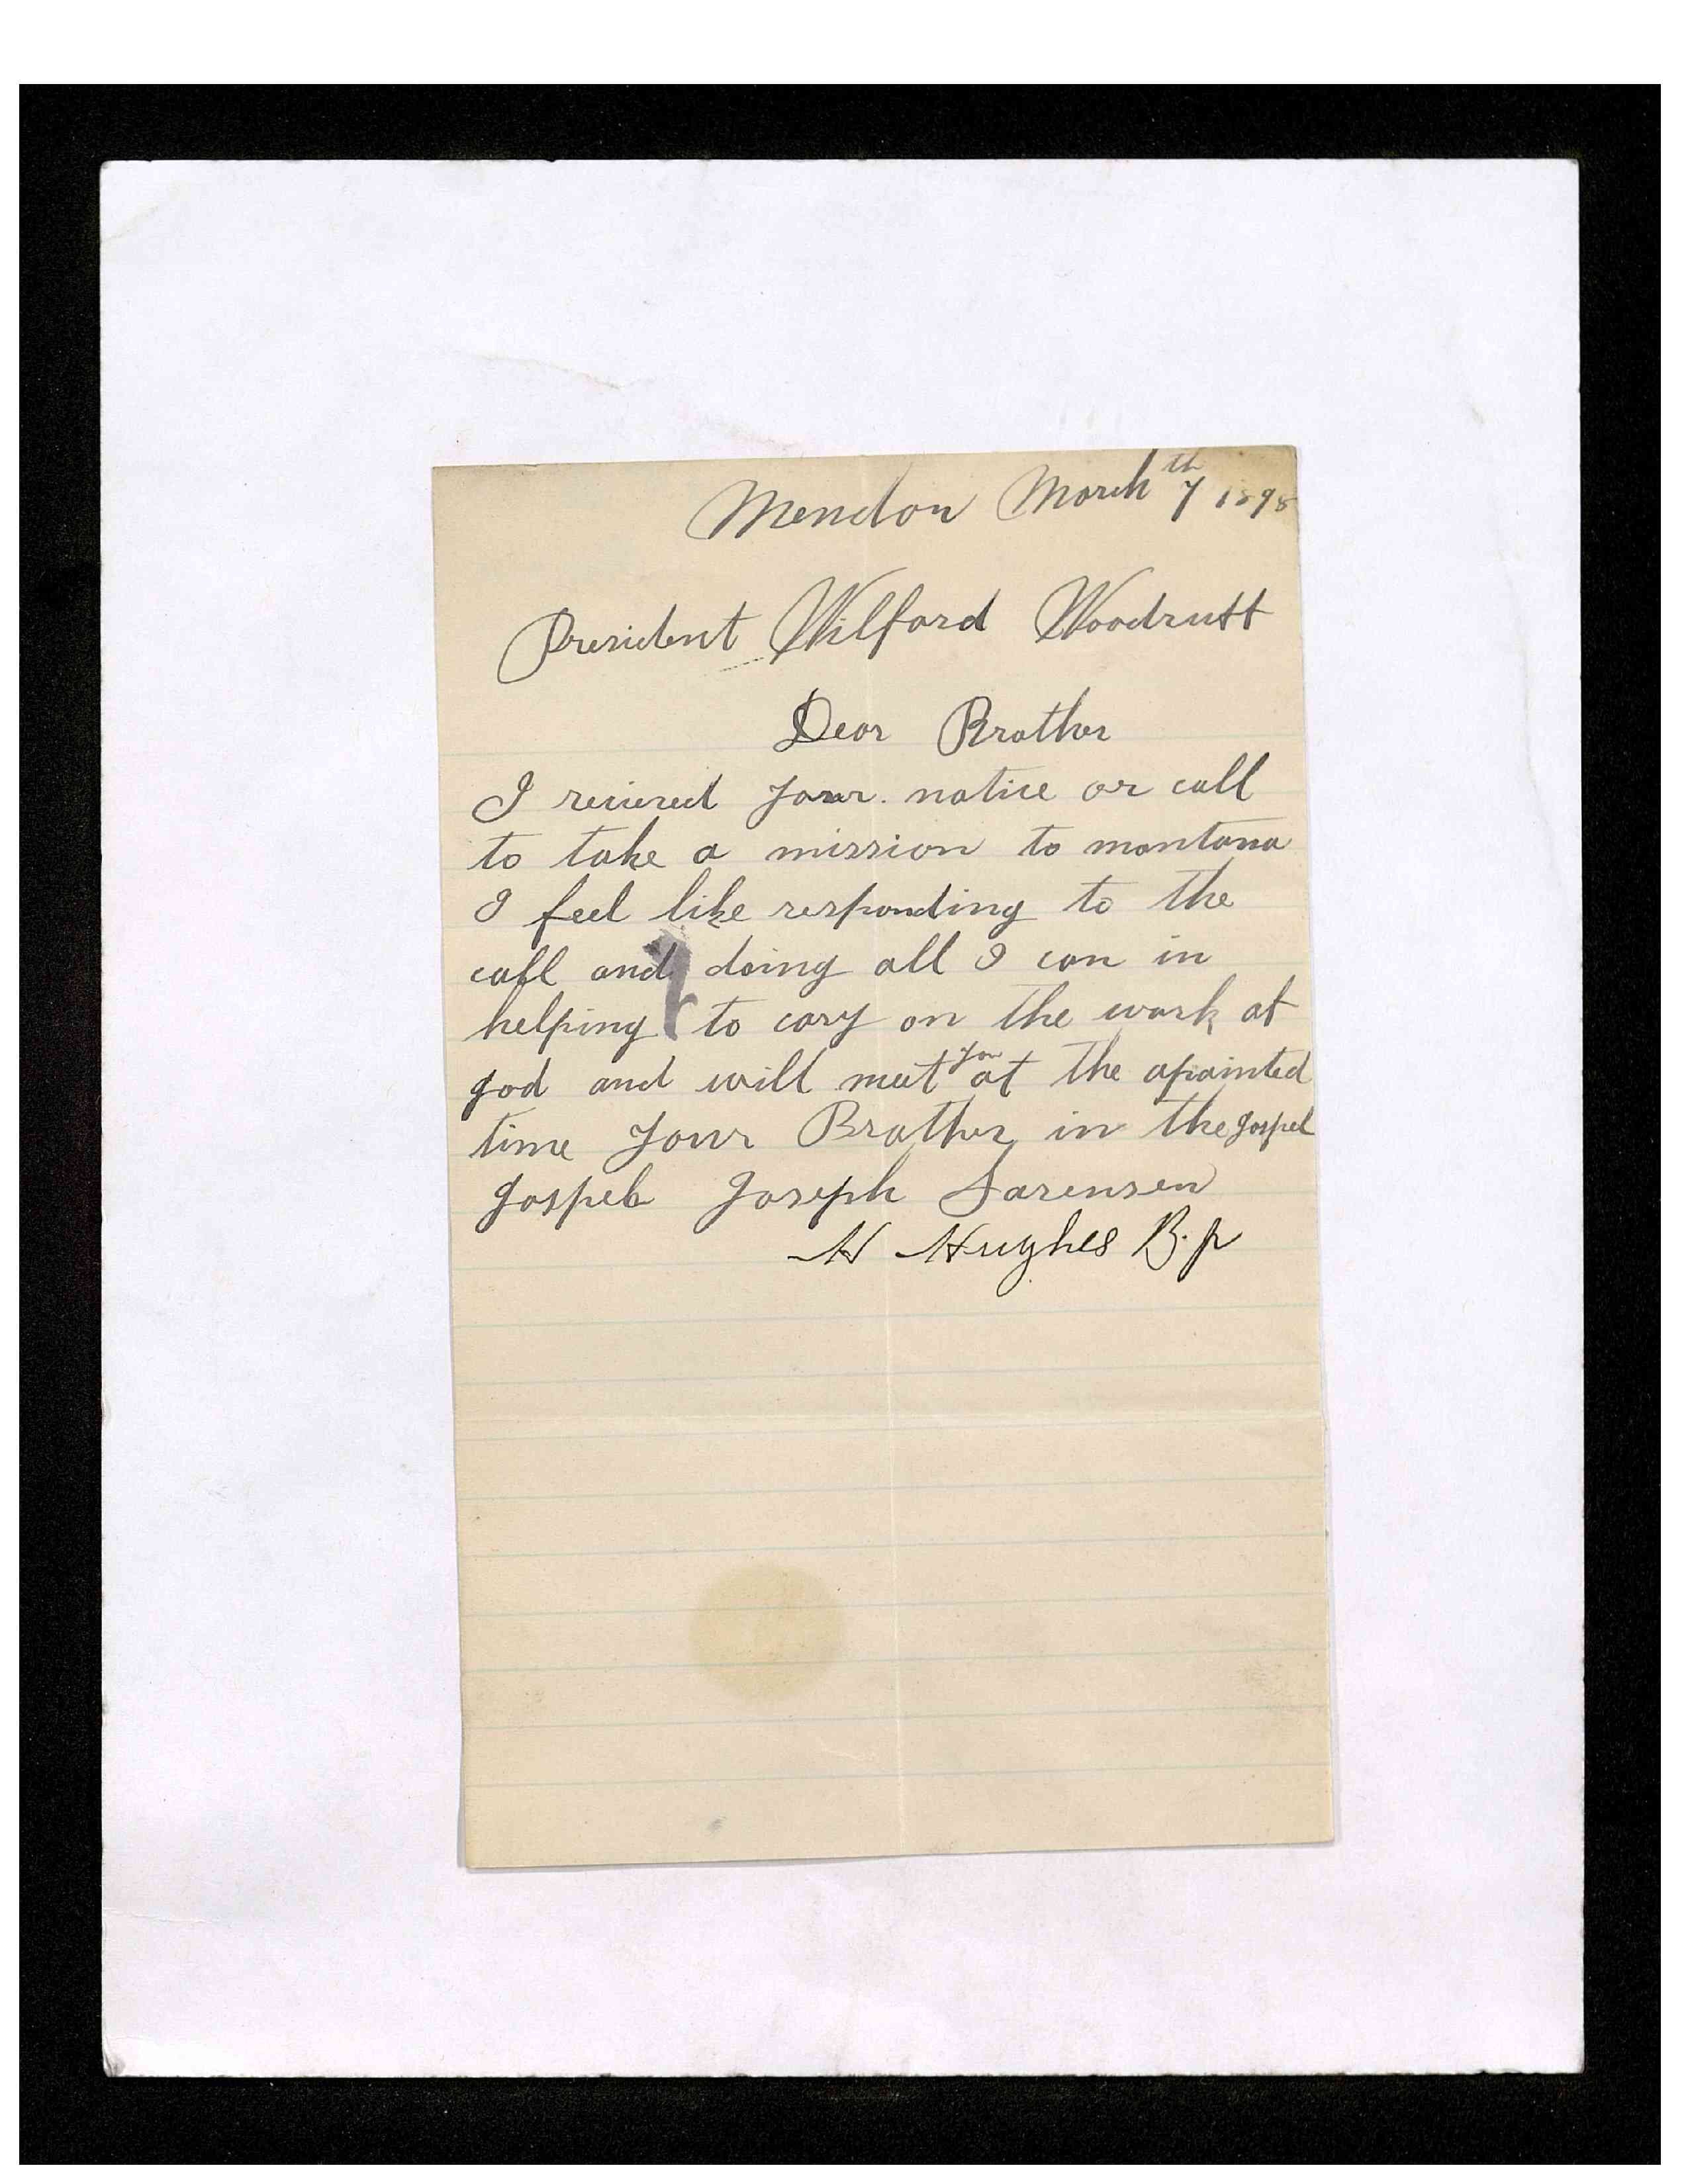 Mendon March 7th 1898
President Wilford Woodruff
Dear Brother
I recieved your notice or call
to take a mission to montana
I feel like responding to the
call and doing all I can in
helping to cary on the work of
god and will meet you at the apointed
time Your Brother in the gospel
gospel Joseph Sorensen
H Hughes B.p